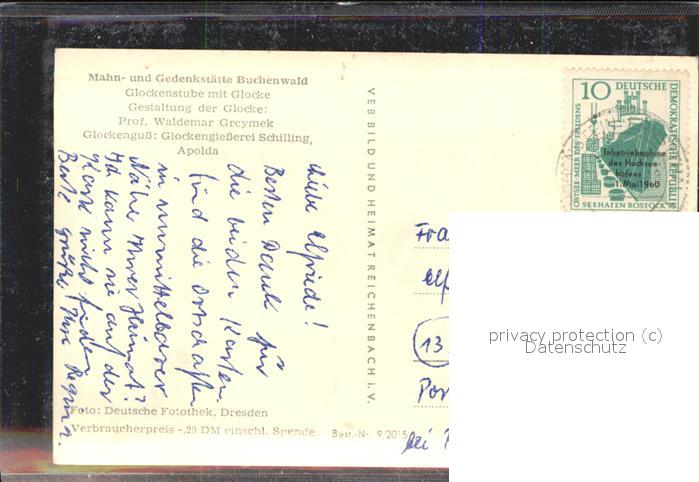 Mahn- und Gedenkstätte Buchenwald
Glockenstube mit Glocke
Gestaltung der Glocke:
Prof. Waldemar Grcymek
Glockenguß: Glockengießerei Schilling,
Apolda
Liebe Elfriede!
Besten Dank für
die beiden Karten.
Sind die Ortschaften
in unmittelbarer
Nähe Ihrer Heimat?
Ich kann sie auf der
Karte nicht finden.
Beste Grüße Ihre Regina.
Foto: Deutsche Fotothek, Dresden
Verbraucherpreis -,20 DM einschl. Spende
Best.-Nr. 9/2015
VEB BILD UND HEIMAT REICHENBACH I. V.
10 DEUTSCHE
DEMOKRATISCHE REPUBLIK
OSTSEE-MEER DES FRIEDENS
Inbetriebnahme
des Hochsee-
hafens
1. Mai 1960
SEEHAFEN ROSTOCK
Fra
elf
13
Por
bei
privacy protection (c)
Datenschutz